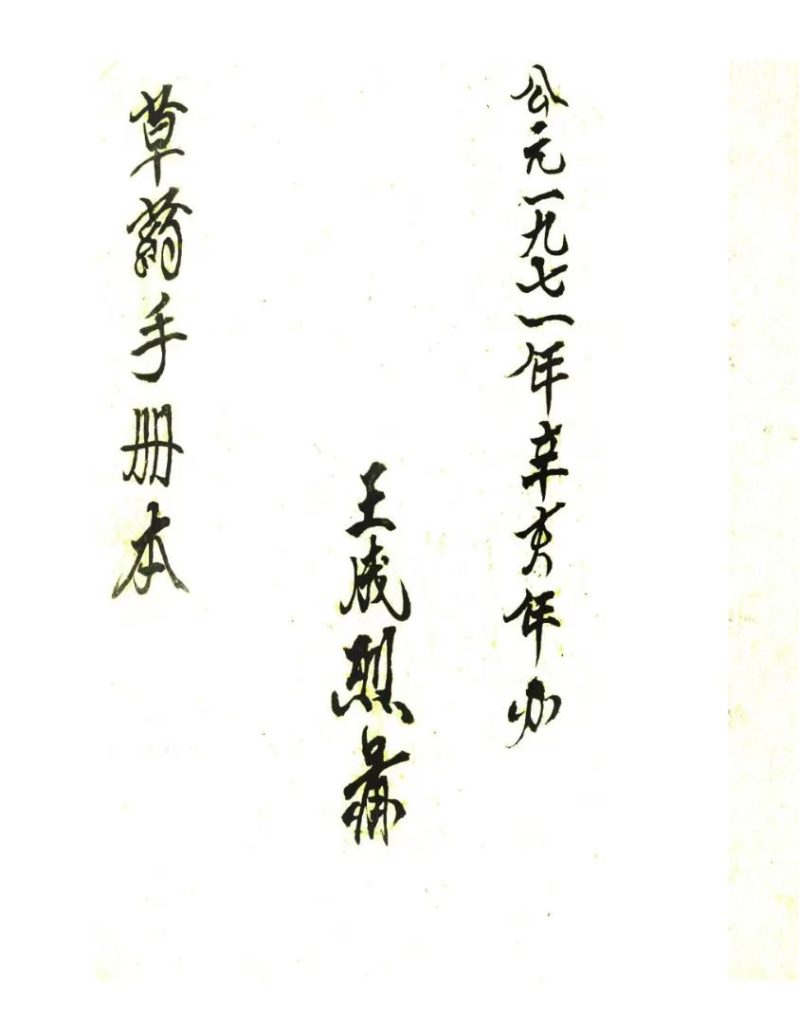 公元一九七一年辛亥年办
王成烈
草药手册本